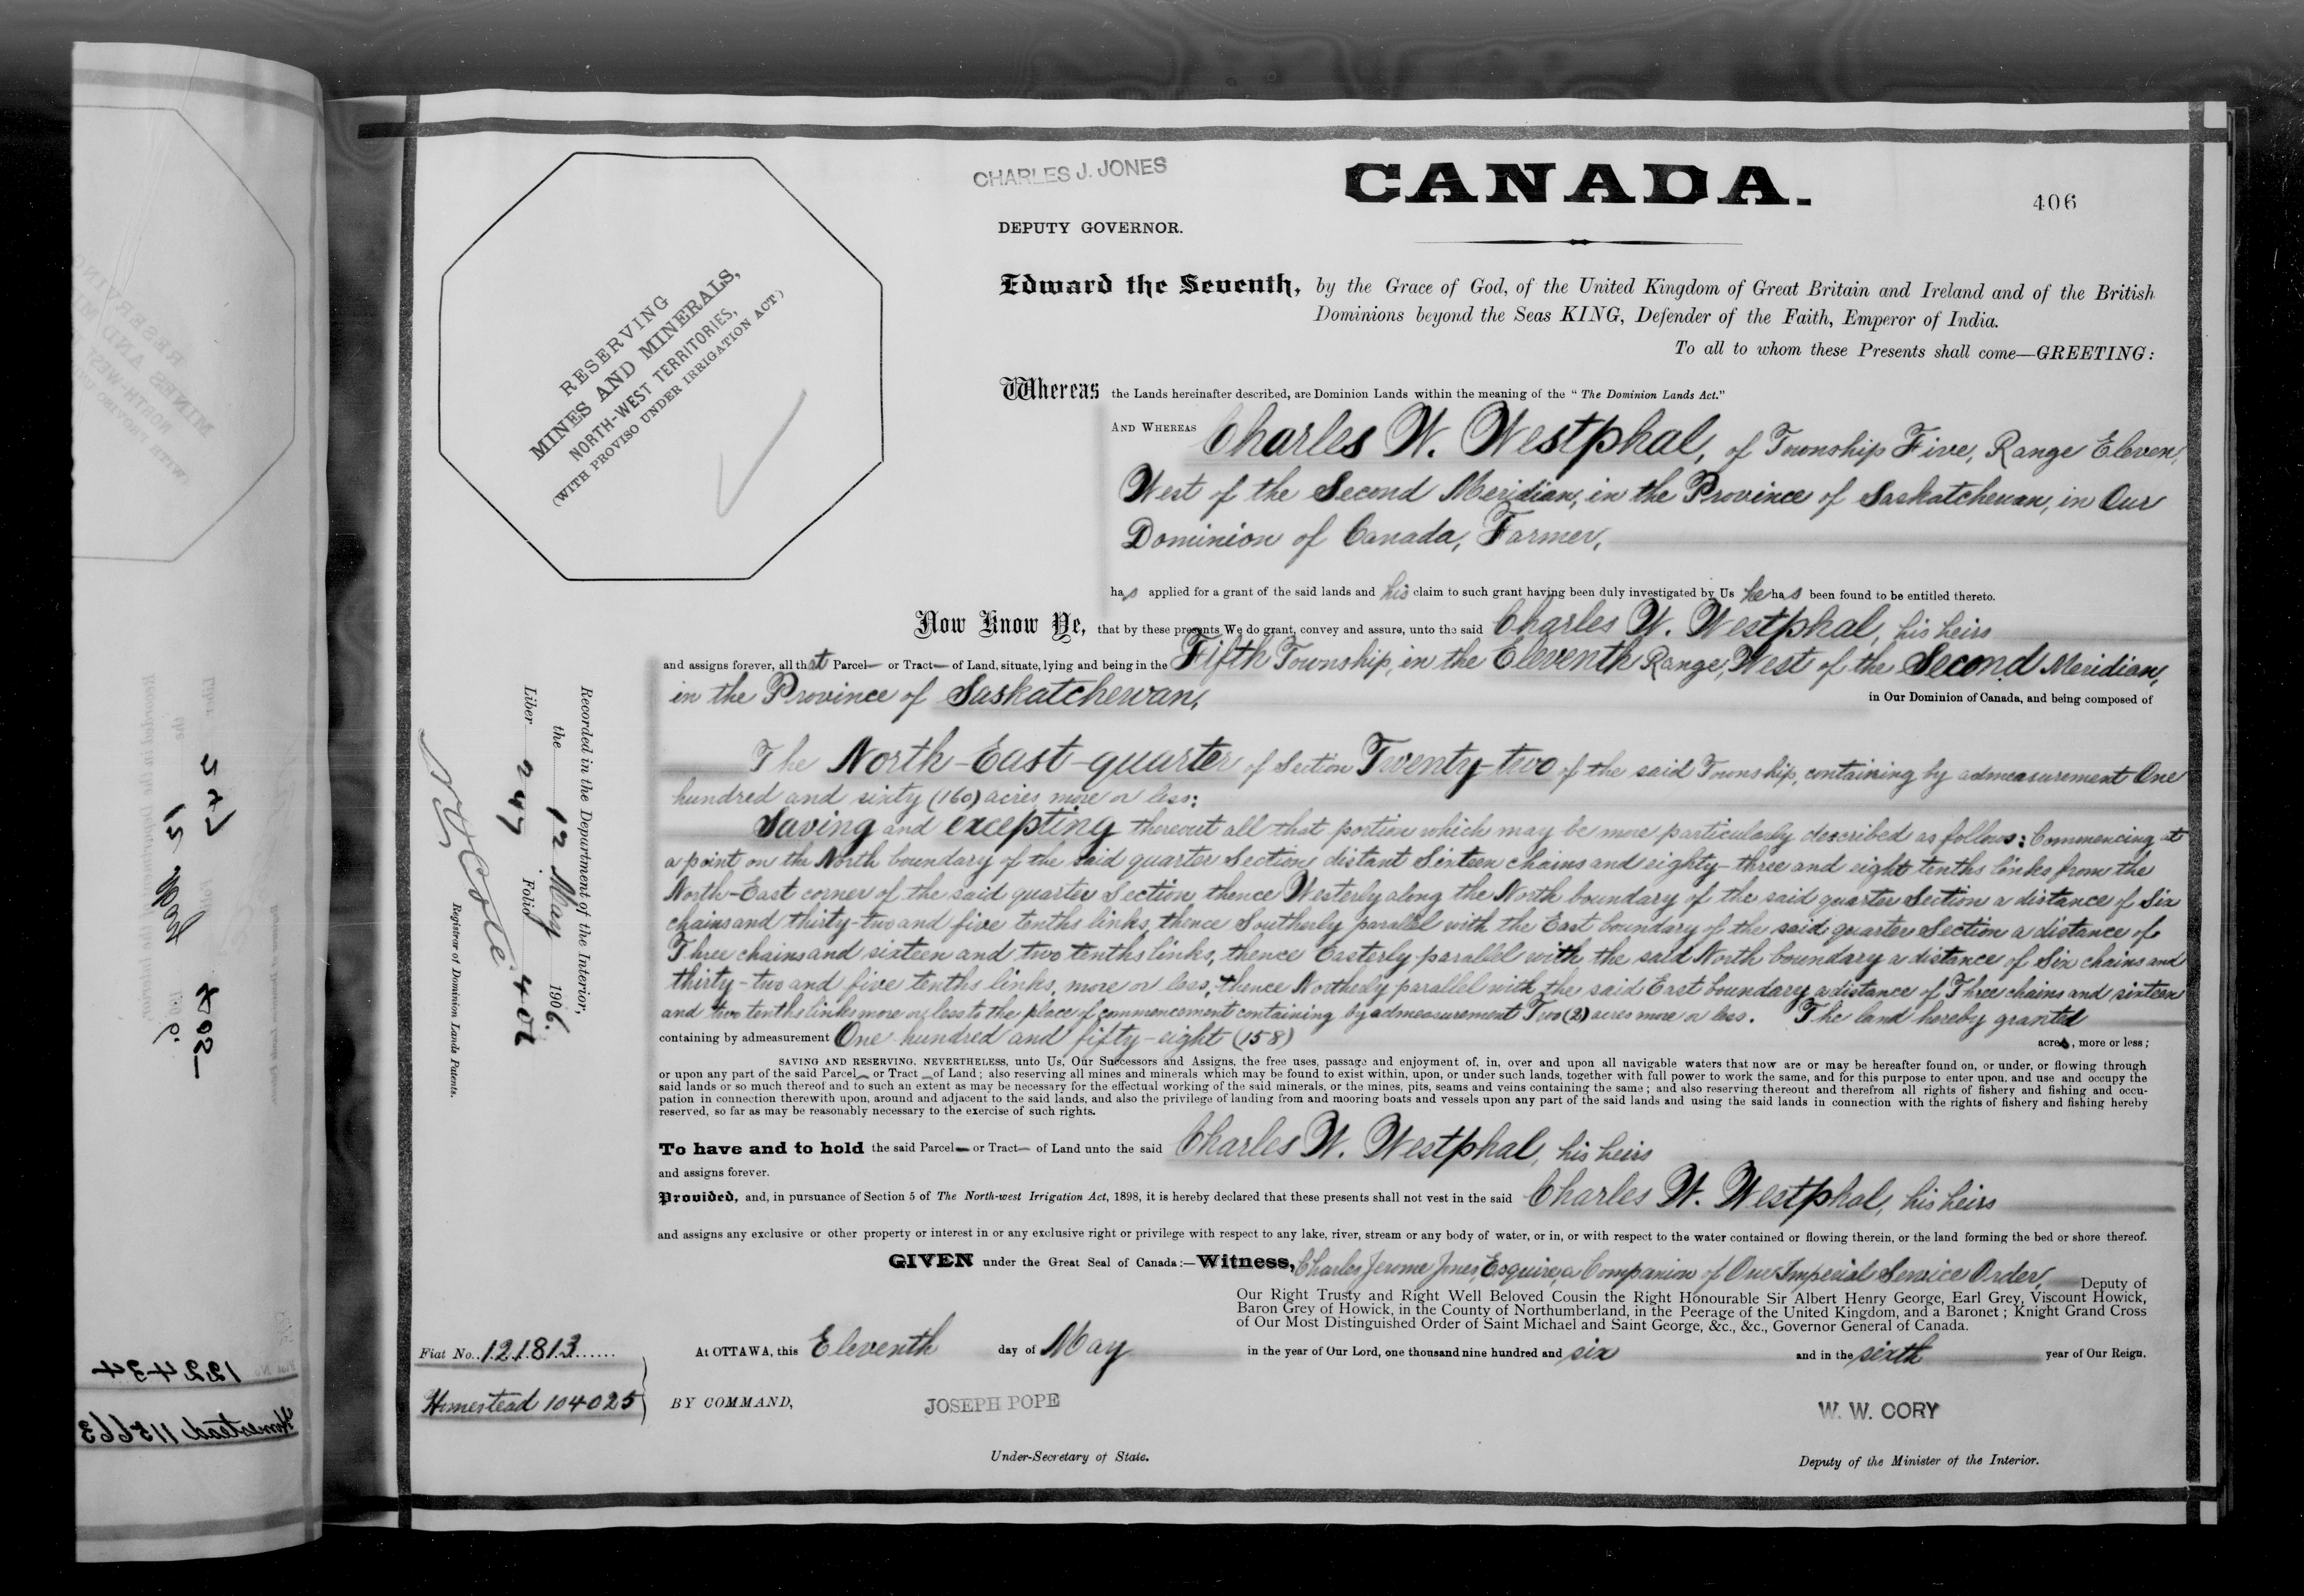 CHARLES J. JONES
CANADA.
406
DEPUTY GOVERNOR.
RESERVING
MINES AND MINERALS,
NORTH-WEST TERRITORIES,
(WITH PROVISO UNDER IRRIGATION ACT)
Edward the Seventh, by the Grace of God, of the United Kingdom of Great Britain and Ireland and of the British
Dominions beyond the Seas KING, Defender of the Faith, Emperor of India.
To all to whom these Presents shall come—GREETING:
Whereas the Lands hereinafter described, are Dominion Lands within the meaning of the "The Dominion Lands Act."
AND WHEREAS Charles W. Westphal, of Township Five, Range Eleven,
West of the Second Meridian, in the Province of Saskatchewan, in Our
Dominion of Canada, Farmer,
has applied for a grant of the said lands and his claim to such grant having been duly investigated by Us he has been found to be entitled thereto.
Now Know Ye, that by these presents We do grant, convey and assure, unto the said Charles W. Westphal, his heirs
and assigns forever, all that Parcel— or Tract— of Land, situate, lying and being in the Fifth Township, in the Eleventh Range, West of the Second Meridian,
in the Province of Saskatchewan, in Our Dominion of Canada, and being composed of
The North-East-quarter of Section Twenty-two of the said Township, containing by admeasurement One
hundred and sixty (160) acres, more or less:
Saving and excepting thereout all that portion which may be more particularly described as follows: Commencing at
a point on the North boundary of the said quarter Section distant Sixteen chains and eighty-three and eight tenths links from the
North-East corner of the said quarter Section, thence Westerly along the North boundary of the said quarter Section a distance of Six
chains and thirty-two and five tenths links, thence Southerly parallel with the East boundary of the said quarter Section a distance of
Three chains and sixteen and two tenths links, thence Easterly parallel with the said North boundary a distance of Six chains and
thirty-two and five tenths links, more or less, thence Northerly parallel with the said East boundary a distance of Three chains and sixteen
and two tenths links more or less to the place of commencement containing by admeasurement Two (2) acres more or less. The land hereby granted
containing by admeasurement One hundred and fifty-eight (158) acres, more or less;
SAVING AND RESERVING, NEVERTHELESS, unto Us, Our Successors and Assigns, the free uses, passage and enjoyment of, in, over and upon all navigable waters that now are or may be hereafter found on, or under, or flowing through
or upon any part of the said Parcel— or Tract— of Land; also reserving all mines and minerals which may be found to exist within, upon, or under such lands, together with full power to work the same, and for this purpose to enter upon, and use and occupy the
said lands or so much thereof and to such an extent as may be necessary for the effectual working of the said minerals, or the mines, pits, seams and veins containing the same; and also reserving thereout and therefrom all rights of fishery and fishing and occu-
pation in connection therewith upon, around and adjacent to the said lands, and also the privilege of landing from and mooring boats and vessels upon any part of the said lands and using the said lands in connection with the rights of fishery and fishing hereby
reserved, so far as may be reasonably necessary to the exercise of such rights.
To have and to hold the said Parcel— or Tract— of Land unto the said Charles W. Westphal, his heirs
and assigns forever.
Provided, and, in pursuance of Section 5 of The North-west Irrigation Act, 1898, it is hereby declared that these presents shall not vest in the said Charles W. Westphal, his heirs
and assigns any exclusive or other property or interest in or any exclusive right or privilege with respect to any lake, river, stream or any body of water, or in, or with respect to the water contained or flowing therein, or the land forming the bed or shore thereof.
GIVEN under the Great Seal of Canada:—Witness, Charles Jerome Jones, Esquire, a Companion of Our Imperial Service Order, Deputy of
Our Right Trusty and Right Well Beloved Cousin the Right Honourable Sir Albert Henry George, Earl Grey, Viscount Howick,
Baron Grey of Howick, in the County of Northumberland, in the Peerage of the United Kingdom, and a Baronet; Knight Grand Cross
of Our Most Distinguished Order of Saint Michael and Saint George, &c., &c., Governor General of Canada.
At OTTAWA, this Eleventh day of May in the year of Our Lord, one thousand nine hundred and six and in the sixth year of Our Reign.
BY COMMAND,
JOSEPH POPE
Under-Secretary of State.
W. W. CORY
Deputy of the Minister of the Interior.
Fiat No. 121813
Homestead 104025
Recorded in the Department of the Interior,
the 12 May 1906.
Liber 247 Folio 406
Registrar of Dominion Lands Patents.
122434
Homestead 115663